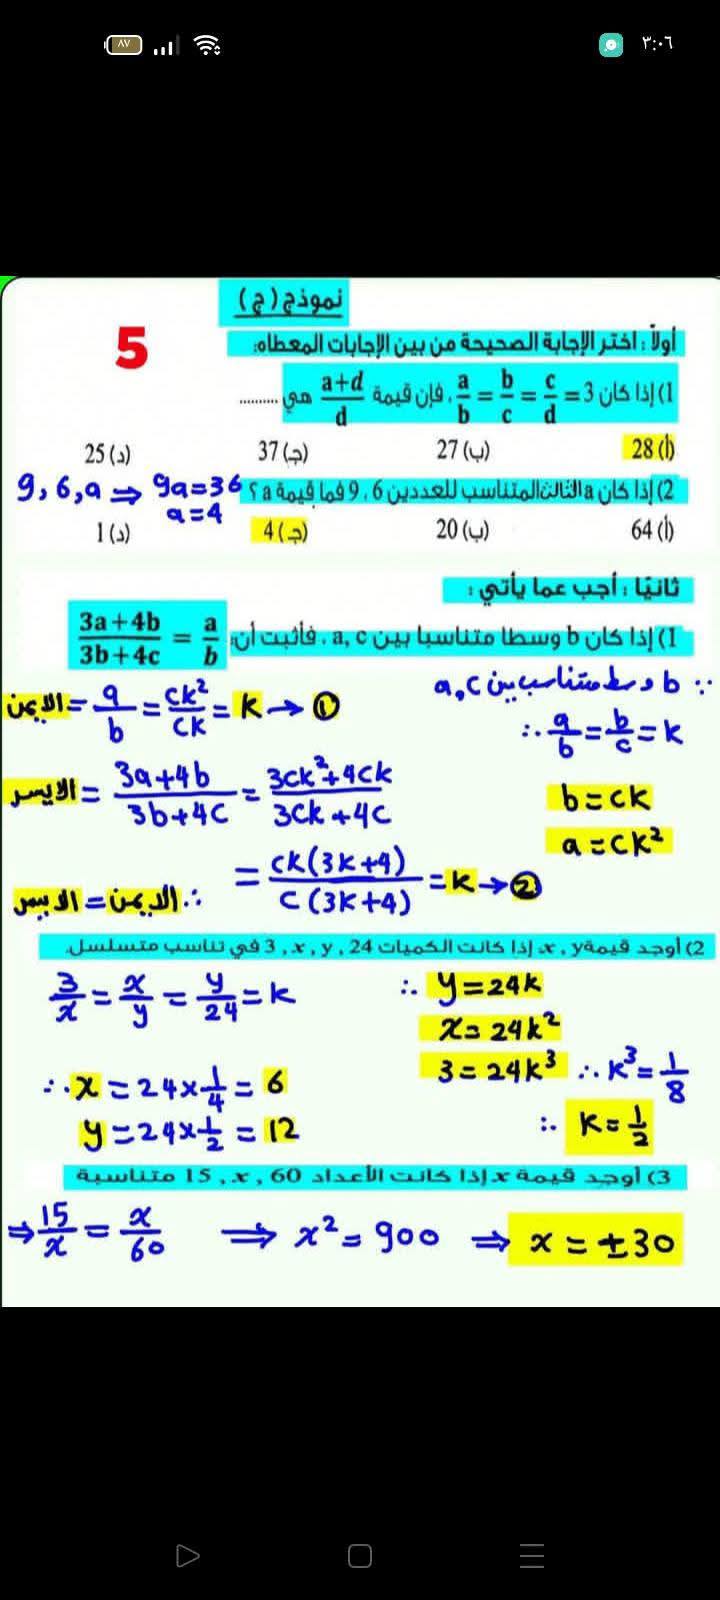 ٨٧
٣:٠٦
نموذج (ج)
5
أولاً : اختر الإجابة الصحيحة من بين الإجابات المعطاه:
1) إذا كان a/b = b/c = c/d = 3 ، فإن قيمة (a+d)/d هي ..........
(أ) 28 (ب) 27 (ج) 37 (د) 25
2) إذا كان a الثالث المتناسب للعددين 6 ، 9 فما قيمة a ؟
9, 6, a ⇒ 9a = 36
a = 4
(أ) 64 (ب) 20 (ج) 4 (د) 1
ثانيًا : أجب عما يأتي :
1) إذا كان b وسطا متناسبا بين a, c ، فأثبت أن: (3a+4b)/(3b+4c) = a/b
∵ b وسط متناسب بين a, c
∴ a/b = b/c = k
b = ck
a = ck²
الايمن = a/b = ck²/ck = k → ①
الايسر = (3a+4b)/(3b+4c) = (3ck²+4ck)/(3ck+4c)
= ck(3k+4)/c(3k+4) = k → ②
∴ الايمن = الايسر
2) أوجد قيمة x , y إذا كانت الكميات 3 , x , y , 24 في تناسب متسلسل.
3/x = x/y = y/24 = k
∴ y = 24k
x = 24k²
3 = 24k³ ∴ k³ = 1/8
∴ k = 1/2
∴ x = 24 × 1/4 = 6
y = 24 × 1/2 = 12
3) أوجد قيمة x إذا كانت الأعداد 15 , x , 60 متناسبة
⇒ 15/x = x/60 ⇒ x² = 900 ⇒ x = ±30